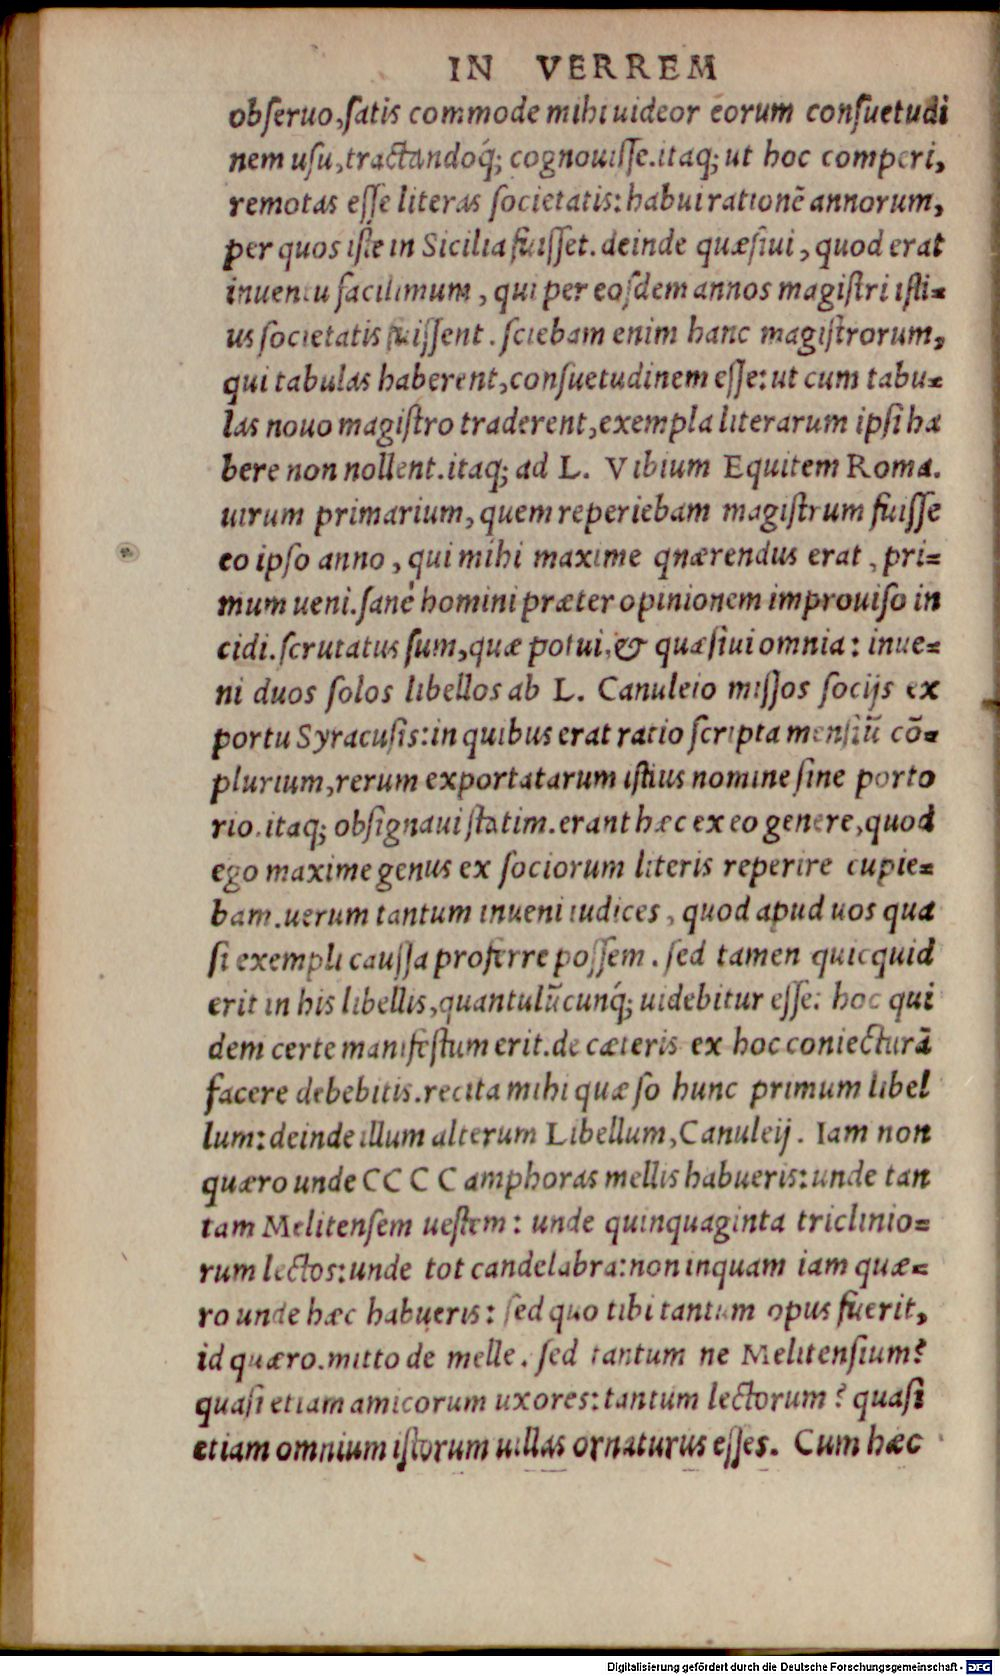 IN VERREM
obſeruo, ſatis commode mihi uideor eorum conſuetudi
nem uſu, tractandoq́; cognouiſſe. itaq; ut hoc comperi,
remotas eſſe literas ſocietatis: habui rationē annorum,
per quos iſte in Sicilia fuiſſet. deinde quæſiui, quod erat
inuentu facilimum, qui per eoſdem annos magiſtri iſti=
us ſocietatis fuiſſent. ſciebam enim hanc magiſtrorum,
qui tabulas haberent, conſuetudinem eſſe: ut cum tabu=
las nouo magiſtro traderent, exempla literarum ipſi ha
bere non nollent. itaq; ad L. Vibium Equitem Roma.
uirum primarium, quem reperiebam magiſtrum fuiſſe
eo ipſo anno, qui mihi maxime qnærendus erat, pri=
mum ueni. ſanè homini præter opinionem improuiſo in
cidi. ſcrutatus ſum, quæ potui, & quæſiui omnia: inue=
ni duos ſolos libellos ab L. Canuleio miſſos ſocijs ex
portu Syracuſis: in quibus erat ratio ſcripta menſiū cō=
plurium, rerum exportatarum iſtius nomine ſine porto
rio. itaq; obſignaui ſtatim. erant hæc ex eo genere, quod
ego maxime genus ex ſociorum literis reperire cupie=
bam. uerum tantum inueni iudices, quod apud uos qua
ſi exempli cauſſa proferre poſſem. ſed tamen quicquid
erit in his libellis, quantulūcunq́; uidebitur eſſe: hoc qui
dem certe manifeſtum erit. de cæteris ex hoc coniecturā
facere debebitis. recita mihi quæſo hunc primum libel
lum: deinde illum alterum Libellum, Canuleij. Iam non
quæro unde CC C C amphoras mellis habueris: unde tan
tam Melitenſem ueſtem: unde quinquaginta triclinio=
rum lectos: unde tot candelabra: non inquam iam quæ=
ro unde hæc habueris: ſed quo tibi tantum opus fuerit,
id quæro. mitto de melle. ſed tantum ne Melitenſium?
quaſi etiam amicorum uxores: tantum lectorum? quaſi
etiam omnium iſtorum uillas ornaturus eſſes. Cum hæc
Digitalisierung gefördert durch die Deutsche Forschungsgemeinschaft - DFG